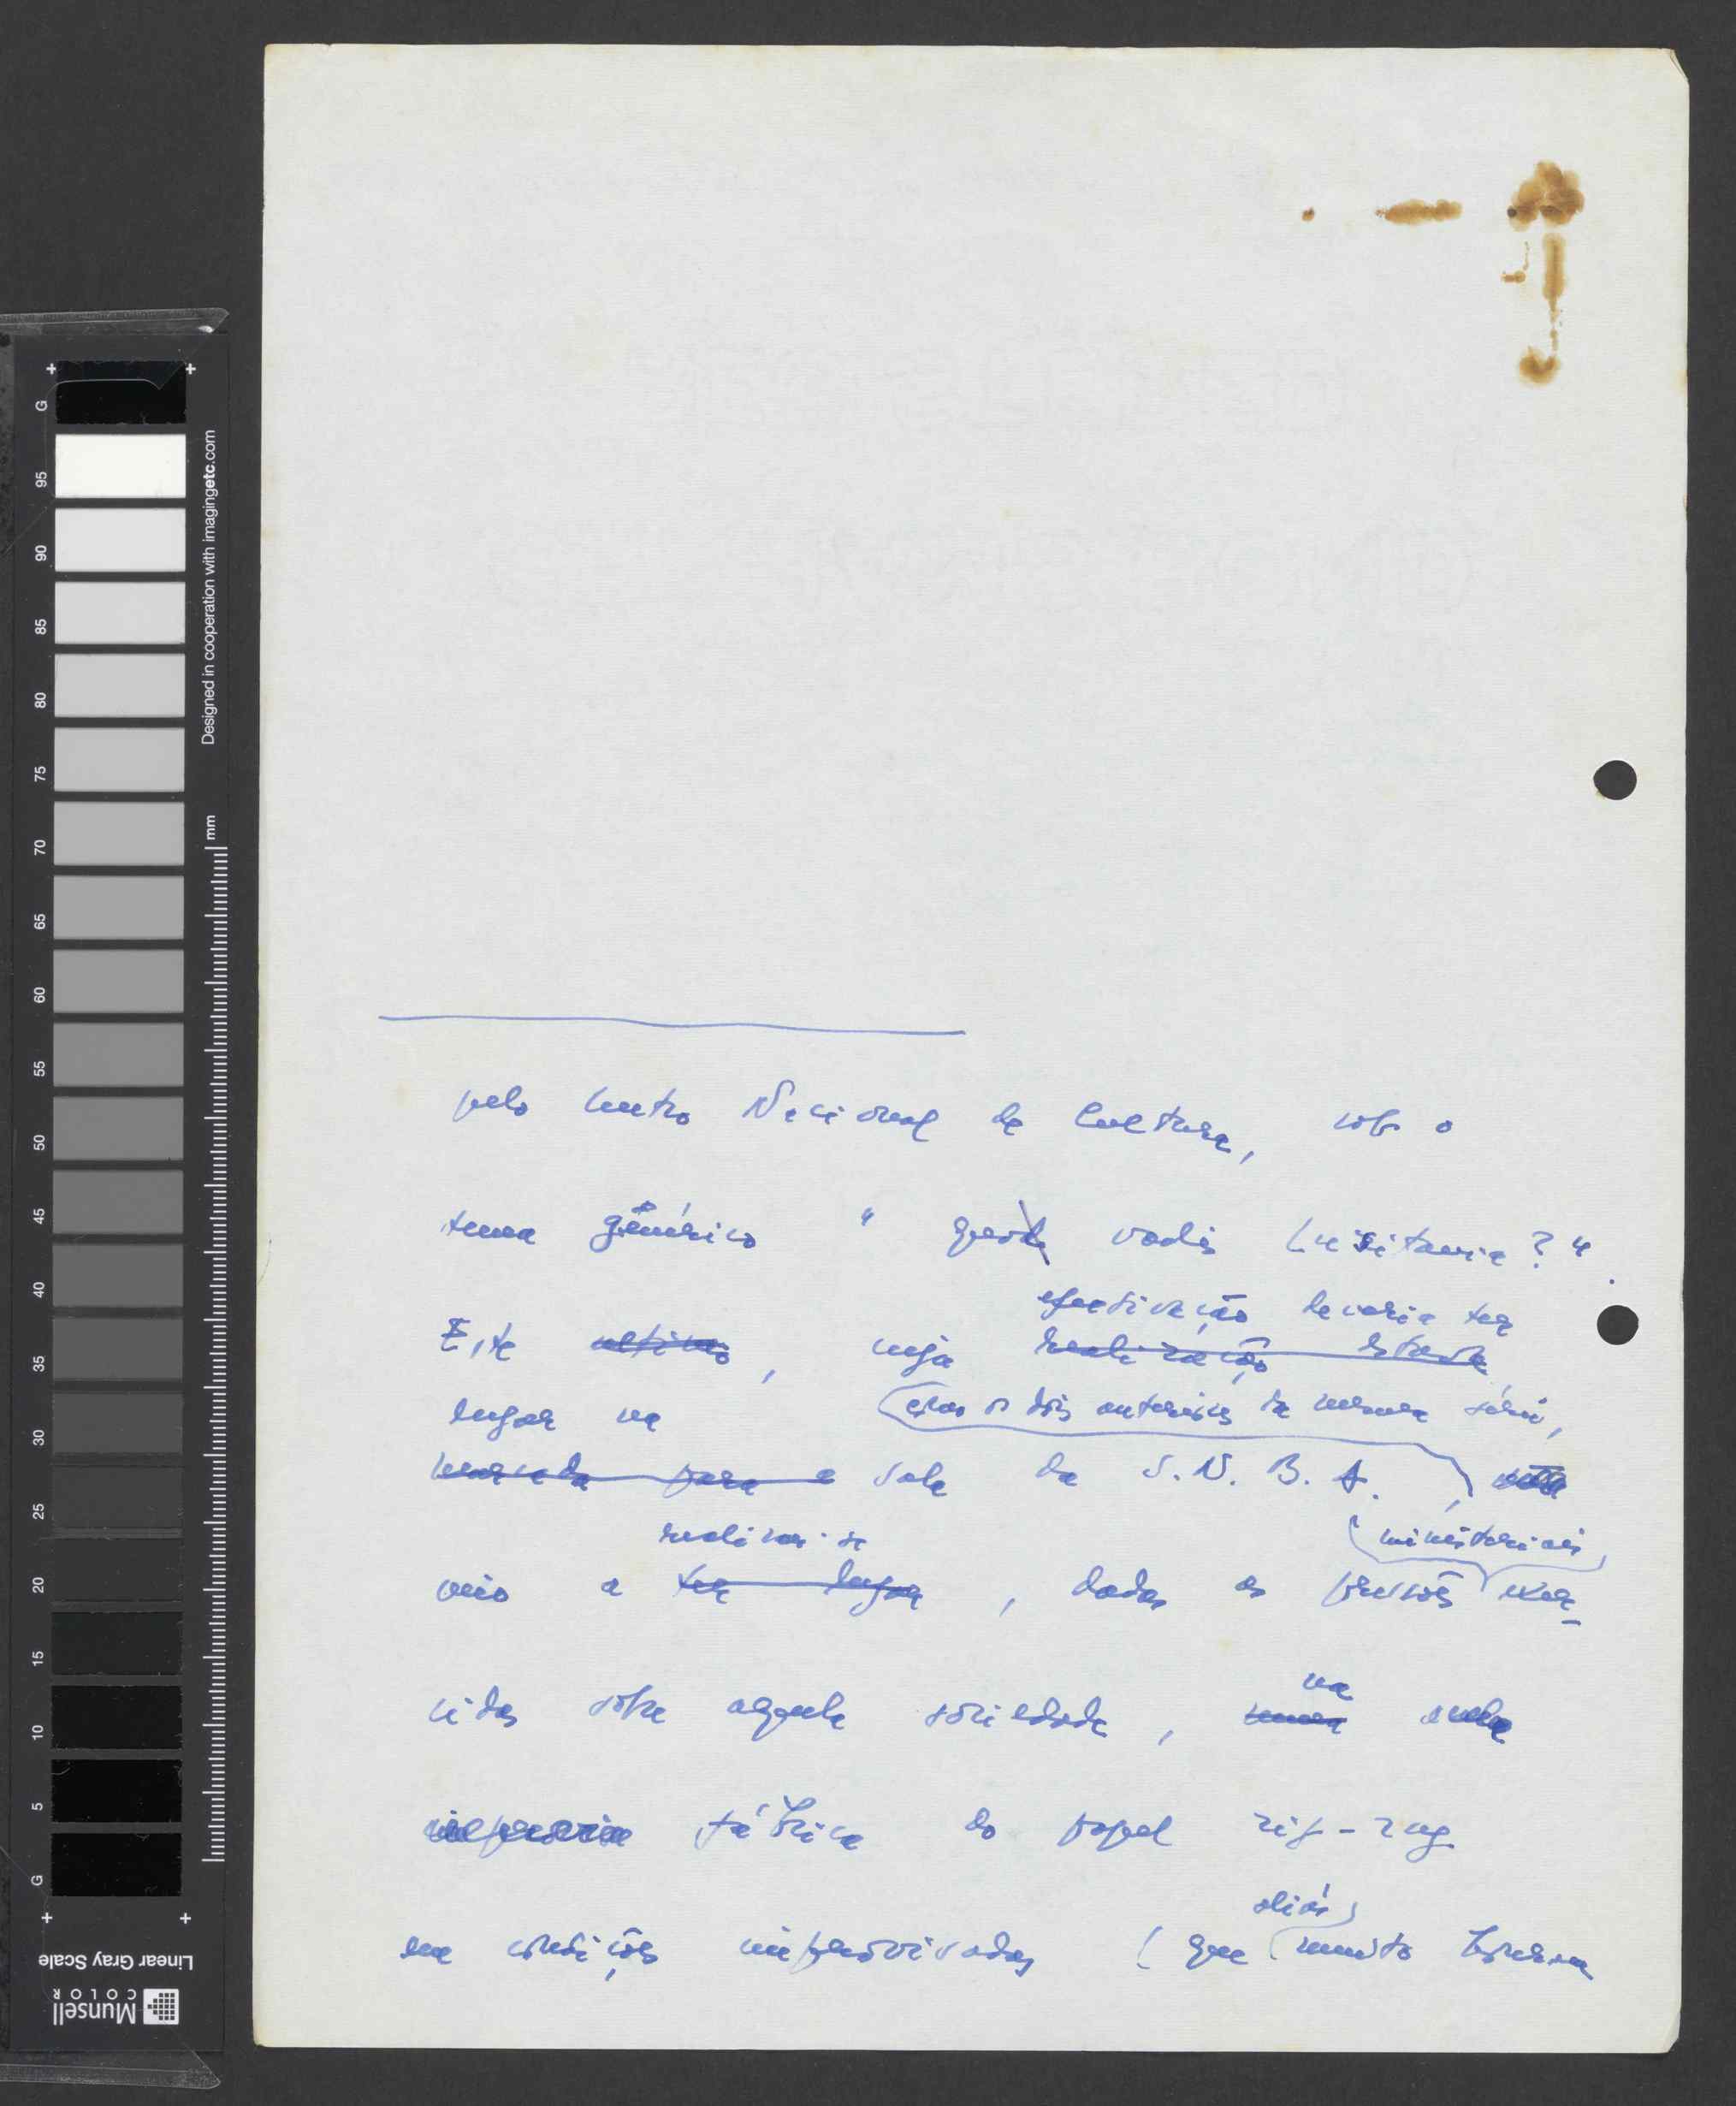 pelo Centro Nacional de Cultura, sob o
tema génèrico " quo vadis Lusitania? ".
efectivação deveria ter
Este ultimo, cuja realização estava
lugar na (como os dois anteriores da mesma série,
marcada para a sala da S.N.B.A.),
realizar-se
(ministeriais)
veio a ter lugar, dadas as pressões exer-
na
cidas sobre aquela sociedade, numa velha
fábrica do papel zig-zag
aliás
em condições improvisadas (que muito
G 95 90 85 80 75 70 65 60 55 50 45 40 35 30 25 20 15 10 5 G
Designed in cooperation with imagingetc.com
mm
Linear Gray Scale
Munsell
COLOR